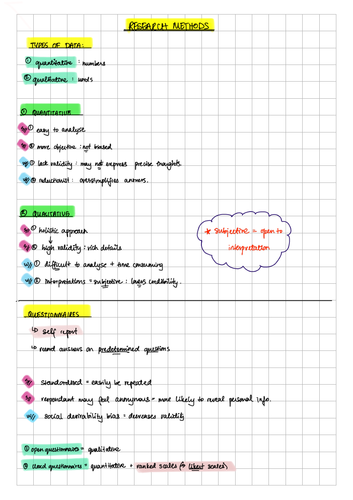 RESEARCH METHODS
TYPES OF DATA:
① quantitative : numbers
② qualitative : words
① QUANTITATIVE
① easy to analyse
② more objective : not biased
① lack validity : may not express precise thoughts
② reductionist : oversimplifies answers.
② QUALITATIVE
① holistic approach
② high validity : rich details
① difficult to analyse + time consuming
② Interpretations = subjective : lacks credibility.
* Subjective = open to
interpretation
QUESTIONNAIRES
↳ self report
↳ record answers on predetermined questions
standardised = easily be repeated
respondant may feel anonymous = more likely to reveal personal info.
social desirability bias = decreases validity
① open questionnaires = qualitative
② closed questionnaires = quantitative + ranked scales (→ likert scales)